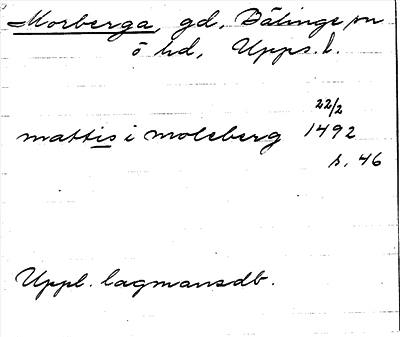 Morberga, gd, Bälinge sn
ö hd, Upps. l.
22/2
mattis i moleberg 1492
s. 46
Uppl. lagmansdb.